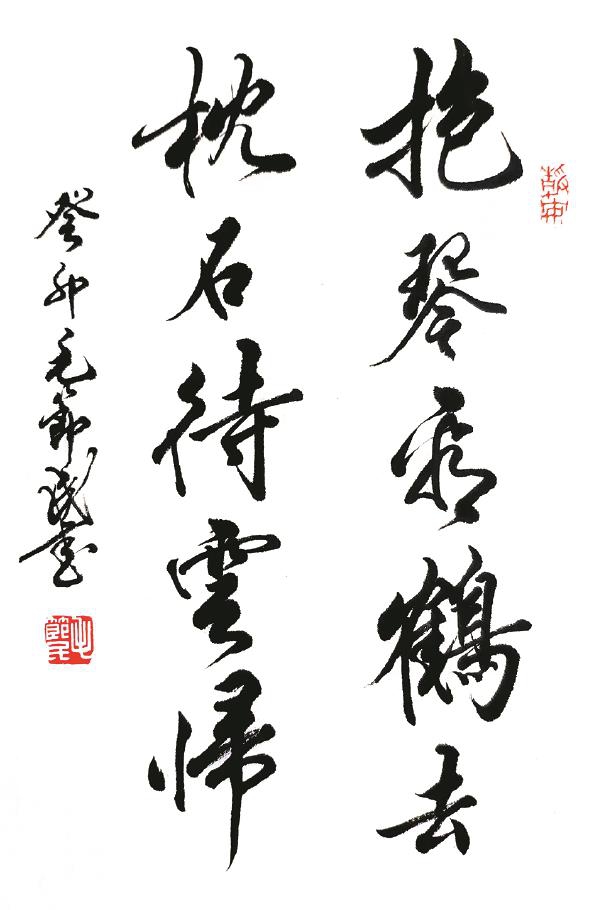 抱琴看鶴去
枕石待雲歸
癸卯毛節民書